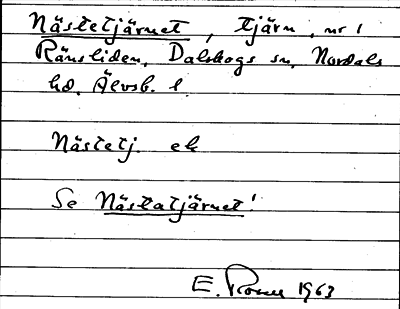 Nästetjärnet, tjärn, nr 1
Ränsliden, Dalskogs sn, Nordals
hd, Älvsb. l.
Nästetj. ek
Se Nästatjärnet!
E. 1963